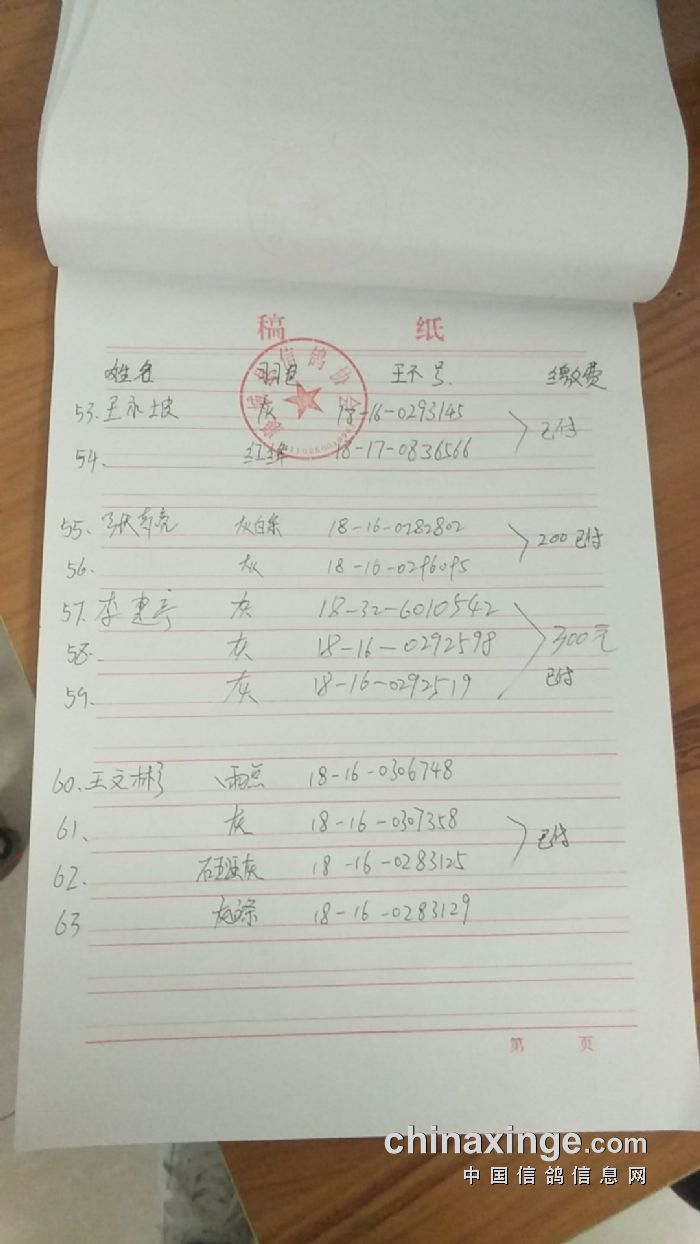 稿 纸
信鸽协会
姓名 羽色 环号 缴费
53. 王永坡 灰 18-16-0293145
已付
54. 红绛 18-17-0836566
55. 张春亮 灰白条 18-16-0282802
200 已付
56. 灰 18-16-0296095
57. 李建 灰 18-32-6010542
58. 灰 18-16-0292598
300元
59. 灰 18-16-0292519
已付
60. 王文彬 雨点 18-16-0306748
61. 灰 18-16-0307358
已付
62. 石板灰 18-16-0283125
63 灰白条 18-16-0283129
第 页
chinaxinge.com
中国信鸽信息网